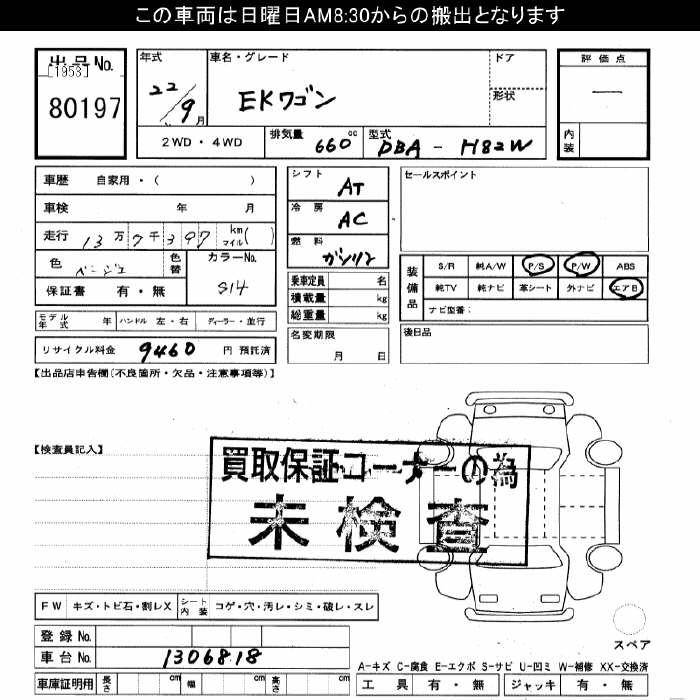 この車両は日曜日AM8:30からの搬出となります
出品No.
[1953]
80197
年式
22/9月
車名・グレード
EKワゴン
ドア
形状
評価点
—
内装
2WD・4WD
排気量 660 cc
型式 DBA - H82W
車歴 自家用・( )
車検 年 月
走行 13万7千397 km マイル( )
色 ベージュ 色替
カラーNo. S14
保証書 有・無
シフト AT
冷房 AC
燃料 ガソリン
乗車定員 名
積載量 kg
総重量 kg
セールスポイント
装備品
S/R 純A/W P/S P/W ABS
純TV 純ナビ 革シート 外ナビ エアB
ナビ型番:
モデル年式 年 ハンドル 左・右 ディーラー・並行
名変期限
月 日
後日品
リサイクル料金 9460 円 預託済
【出品店申告欄(不良箇所・欠品・注意事項等)】
【検査員記入】
買取保証コーナーの為
未検査
FW キズ・トビ石・割レX
シート内装 コゲ・穴・汚レ・シミ・破レ・スレ
スペア
登録No.
車台No. 1306818
A-キズ C-腐食 E-エクボ S-サビ U-凹ミ W-補修 XX-交換済
車庫証明用 長さ cm 幅 cm 高さ cm
工具 有・無 ジャッキ 有・無